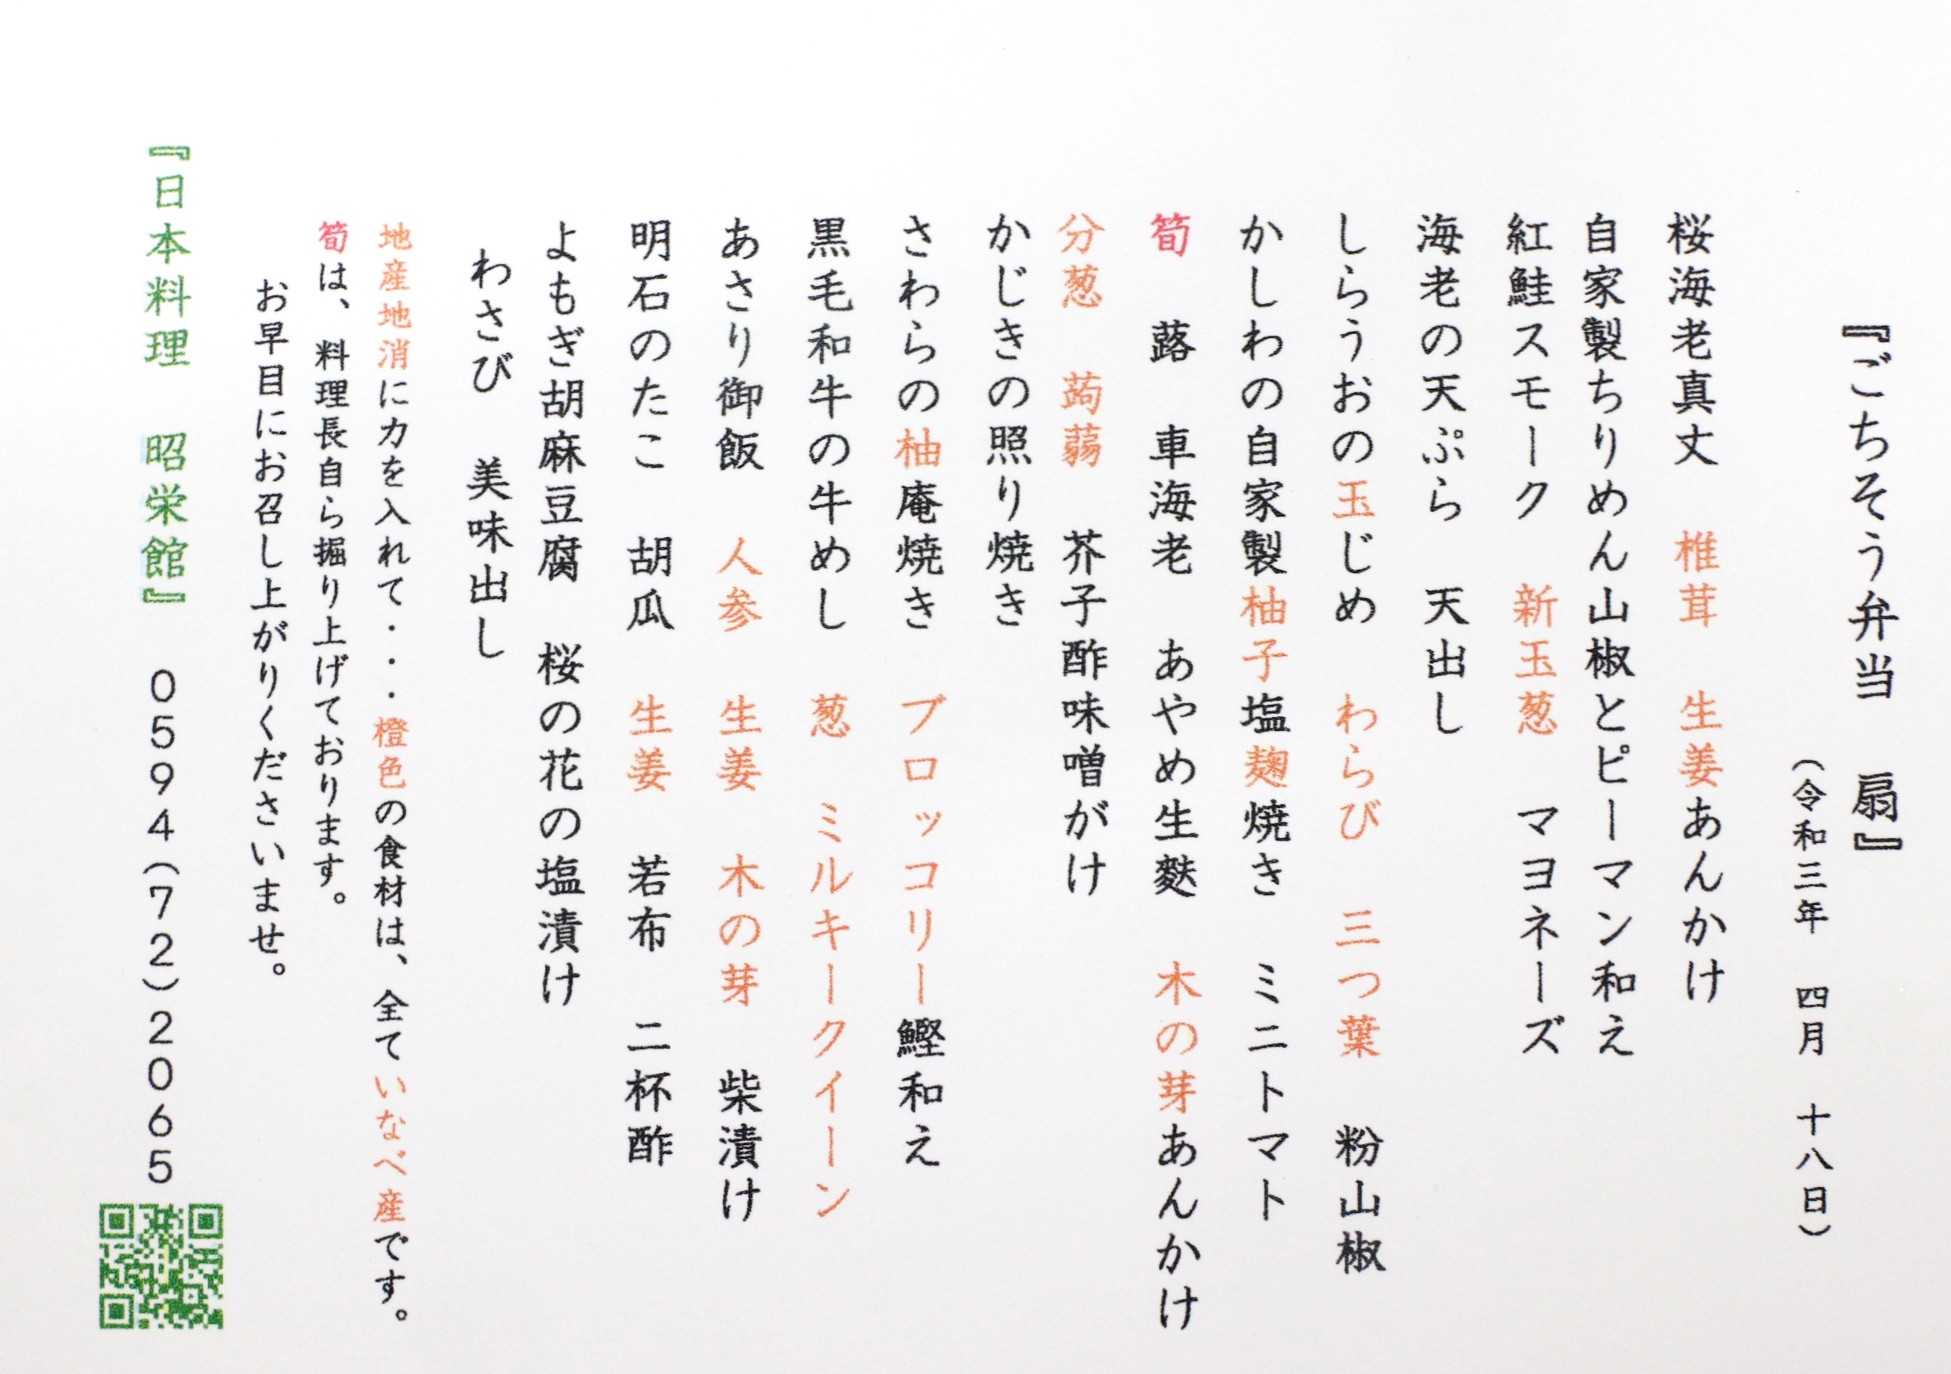 『ごちそう弁当　扇』
（令和三年　四月　十八日）
桜海老真丈　椎茸　生姜あんかけ
自家製ちりめん山椒とピーマン和え
紅鮭スモーク　新玉葱　マヨネーズ
海老の天ぷら　天出し
しらうおの玉じめ　わらび　三つ葉　粉山椒
かしわの自家製柚子塩麹焼き　ミニトマト
筍　蕗　車海老　あやめ生麩　木の芽あんかけ
分葱　蒟蒻　芥子酢味噌がけ
かじきの照り焼き
さわらの柚庵焼き　ブロッコリー鰹和え
黒毛和牛の牛めし　葱　ミルキークイーン
あさり御飯　人参　生姜　木の芽　柴漬け
明石のたこ　胡瓜　生姜　若布　二杯酢
よもぎ胡麻豆腐　桜の花の塩漬け
わさび　美味出し
地産地消に力を入れて・・・橙色の食材は、全ていなべ産です。
筍は、料理長自ら掘り上げております。
お早目にお召し上がりくださいませ。
『日本料理　昭栄館』　0594(72)2065